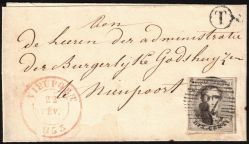 Aan
de heeren der administratie
der Burgerlyke Godshuyzen
te Nieupoort
NIEUPORT
22
FÉV.
1855
T